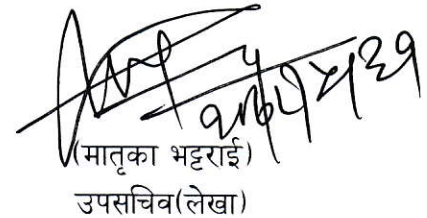 (मातृका भट्टराई)
उपसचिव(लेखा)